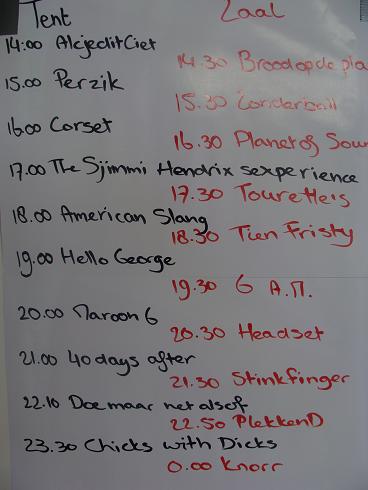 Tent Zaal
14:00 AlsjeditCiet
14.30 Broodopde pla
15.00 Perzik
15.30 Zonderbail
16.00 Corset
16.30 Planet of Soun
17.00 The Sjimmi Hendrix sexperience
17.30 Tourette's
18.00 American Slang
18.30 Tien Fristy
19.00 Hello George
19.30 6 A.M.
20.00 Maroon 6
20.30 Headset
21.00 40 days after
21.30 Stinkfinger
22.10 Doe maar net alsof
22.50 PlekkenD
23.30 Chicks with Dicks
0.00 Knorr